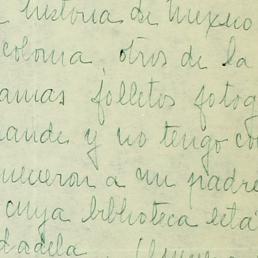 historia de Mexico
colonia, otros de la
folletos fotog
y no tengo co
a mi padre
cuya biblioteca está
dadela